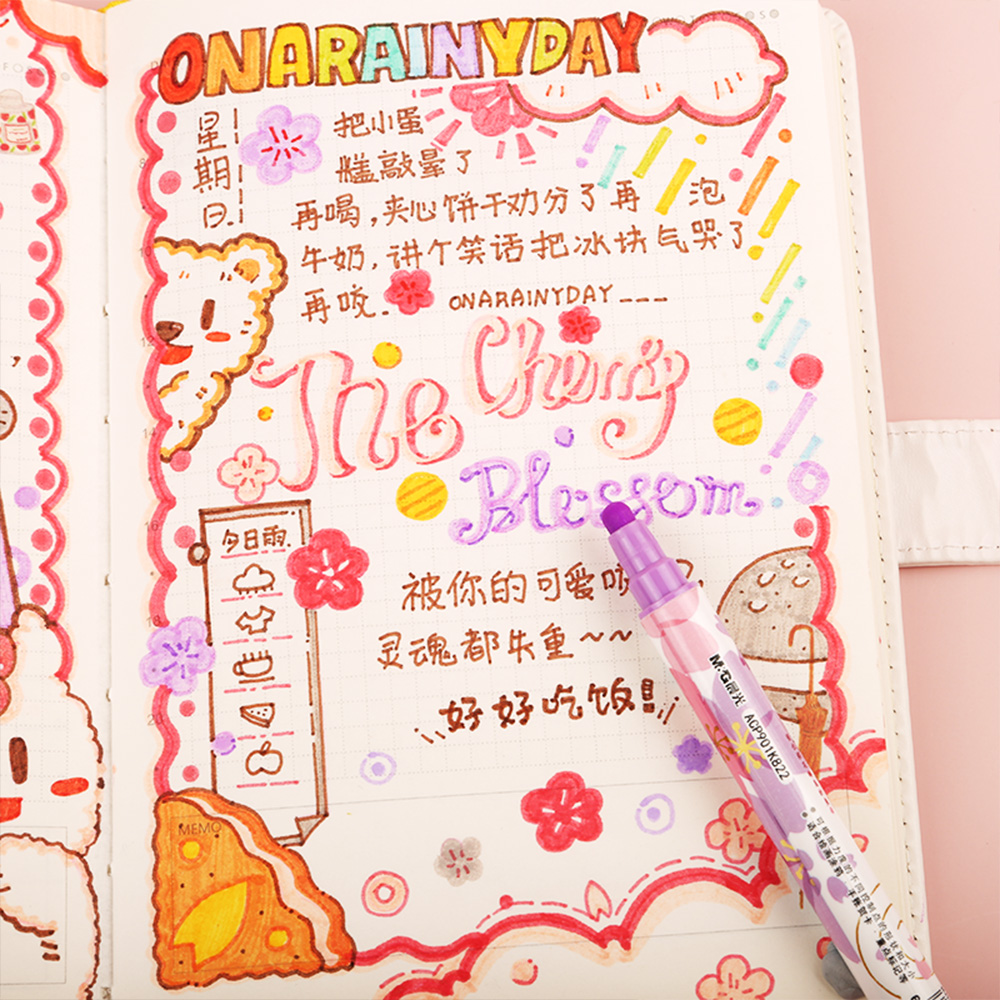 ONARAINYDAY
星期日.
把小蛋
糕敲晕了
再喝,夹心饼干劝分了再 泡
牛奶,讲个笑话把冰块气哭了
再咬.
ONARAINYDAY---
The Cherry
Blossom
今日雨.
被你的可爱
灵魂都失重~~
好好吃饭!!
MEMO
M&G晨光 AGP901K822